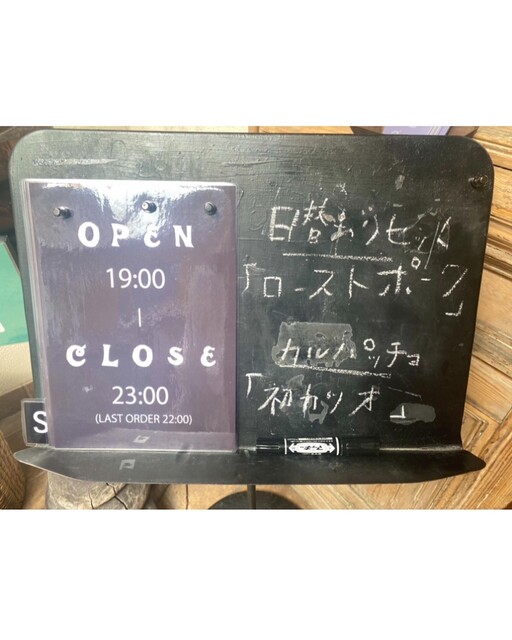 OPEN
19:00
|
CLOSE
23:00
(LAST ORDER 22:00)
S
日替わりセット
「ローストポーク」
カルパッチョ
「初カツオ」